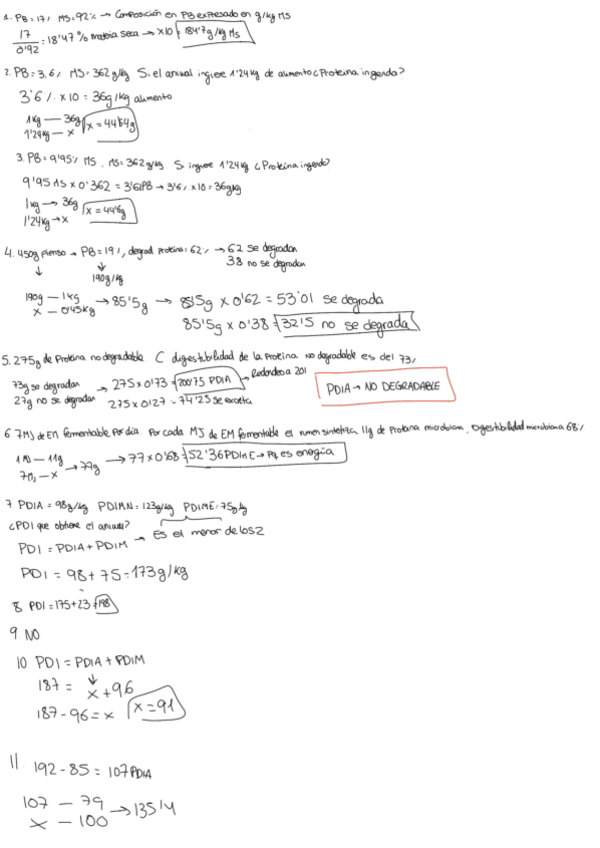 1. PB=17% MS=92% → Composición en PB expresado en g/kg MS
17/0'92 = 18'47 % materia seca → x10 = 184'7g/kg Ms
2. PB=3.6% MS=362g/kg Si el animal ingiere 1'24kg de alimento ¿Proteina ingerida?
3'6% x10 = 36g/kg alimento
1kg — 36g
1'24kg — x
x=44'64g
3. PB=9'95% MS, MS=362g/kg Si ingiere 1'24kg ¿Proteina ingerida?
9'95 MS x 0'362 = 3'6% PB → 3'6% x10 = 36g/kg
1kg → 36g
1'24kg → x
x=44'6g
4. 450g pienso → PB=19%, degrad proteina=62% → 62 se degradan
38 no se degradan
190g/kg
190g — 1kg
x — 0'45kg
→ 85'5g → 85'5g x 0'62 = 53'01 se degrada
85'5g x 0'38 = 32'5 no se degrada
5. 275g de Proteina no degradable C digestibilidad de la proteina no degradable es del 73%
73g se degradan
27g no se degradan
→ 275x0'73 = 200'75 PDIA → Redondeo a 201
275x0'27 = 74'25 se excreta
PDIA → NO DEGRADABLE
6 7MJ de EM fermentable por dia Por cada MJ de EM fermentable el rumen sintetiza 11g de Proteina microbiana. Digestibilidad microbiana 68%
1MJ — 11g
7MJ — x
→ 77g → 77x0'68 = 52'36 PDIME → Pq es energía
7. PDIA = 98g/kg PDIMN=123g/kg PDIME=75g/kg
¿PDI que obtiene el animal?
PDI = PDIA + PDIM → Es el menor de los 2
PDI = 98 + 75 = 173g/kg
8. PDI=175+23=198
9 NO
10 PDI = PDIA + PDIM
187 = x + 96
187-96=x x=91
11 192 - 85 = 107 PDIA
107 — 79
x — 100
→ 135'4